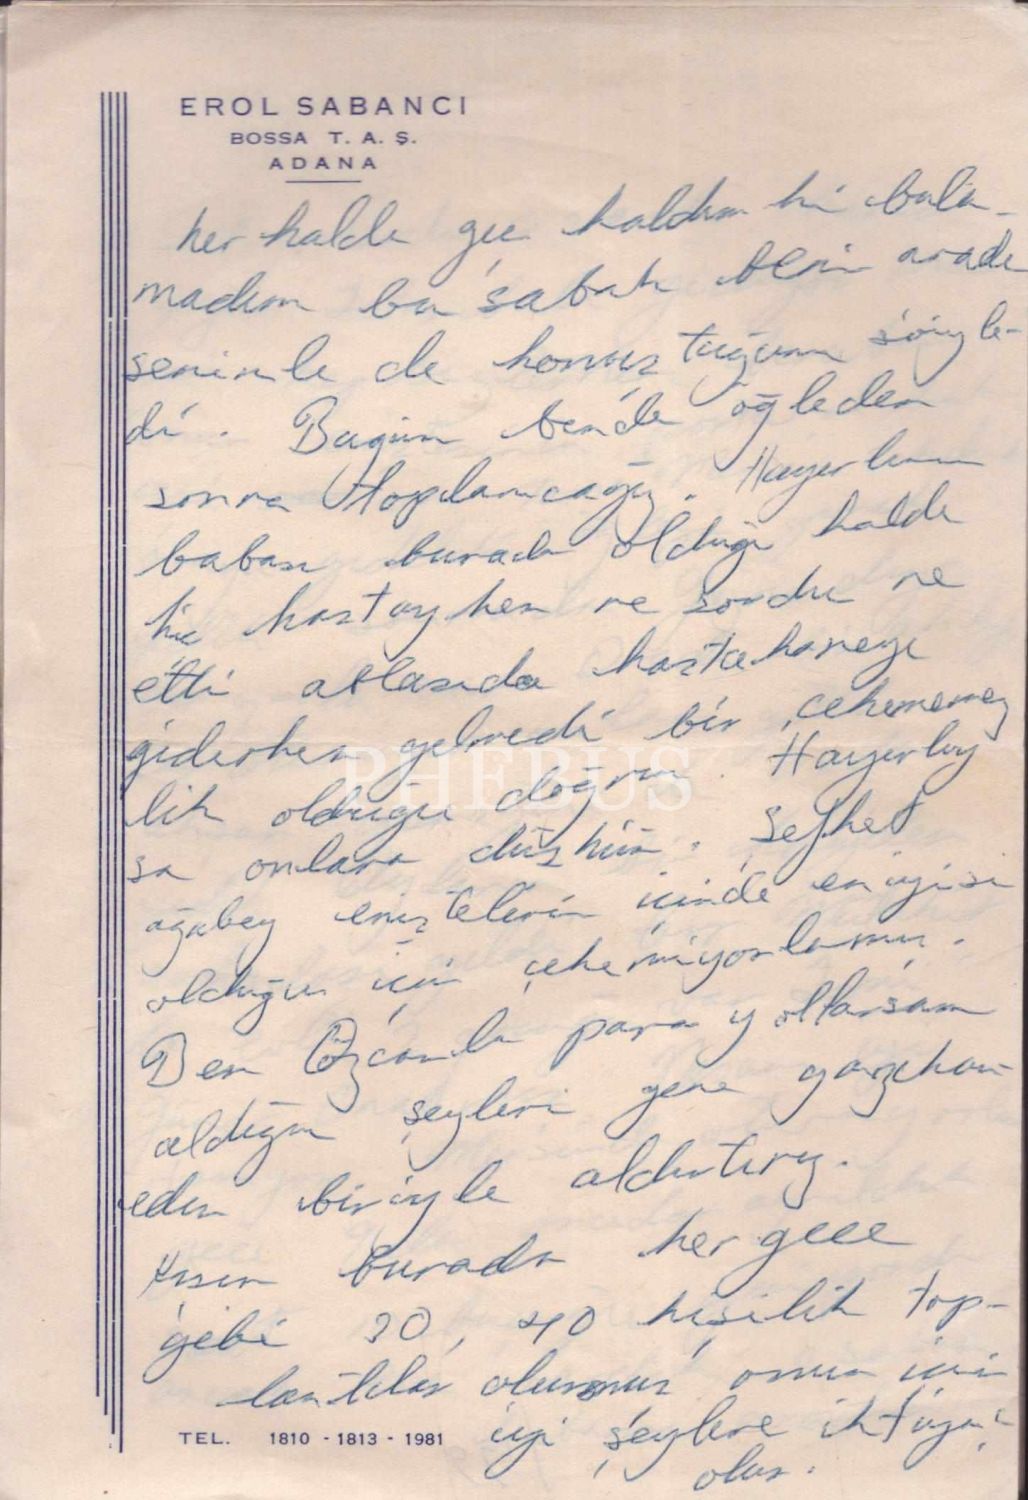 EROL SABANCI
BOSSA T. A. Ş.
ADANA
her halde geç kaldım ki bula-
madım bu sabah beni aradı
seninle de konuştuğunu söyle-
di. Bugün bende öğleden
sonra toplanacağız. Hayırlının
babası burada olduğu halde
hiç hastayken ne sordu ne
etti ablasıda hastahaneye
giderken gelmedi bir çekememez
lik olduğu doğru. Hayırlıy
sa onlara düşkün.
ağabey eniştelerin içinde en iyisi
olduğu için çekemiyorlarmış.
Ben Özcanla para yollarsam
aldığın şeyleri gene
eden biriyle aldırtırız.
Kışın burada her gece
gibi 30, 40 kişilik top-
lantılar olurmuş onun için
iyi şeylere ihtiyaç
olur.
TEL. 1810 - 1813 - 1981
PHEBUS